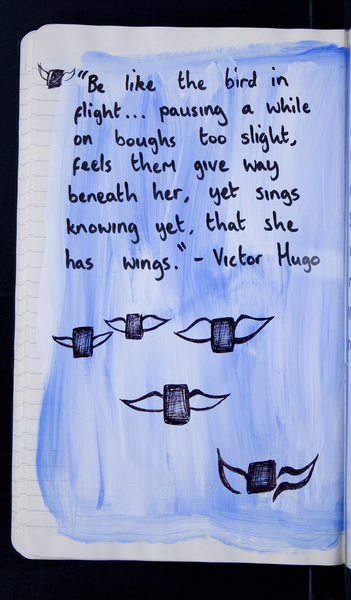 "Be like the bird in
flight... pausing a while
on boughs too slight,
feels them give way
beneath her, yet sings
knowing yet, that she
has wings." - Victor Hugo